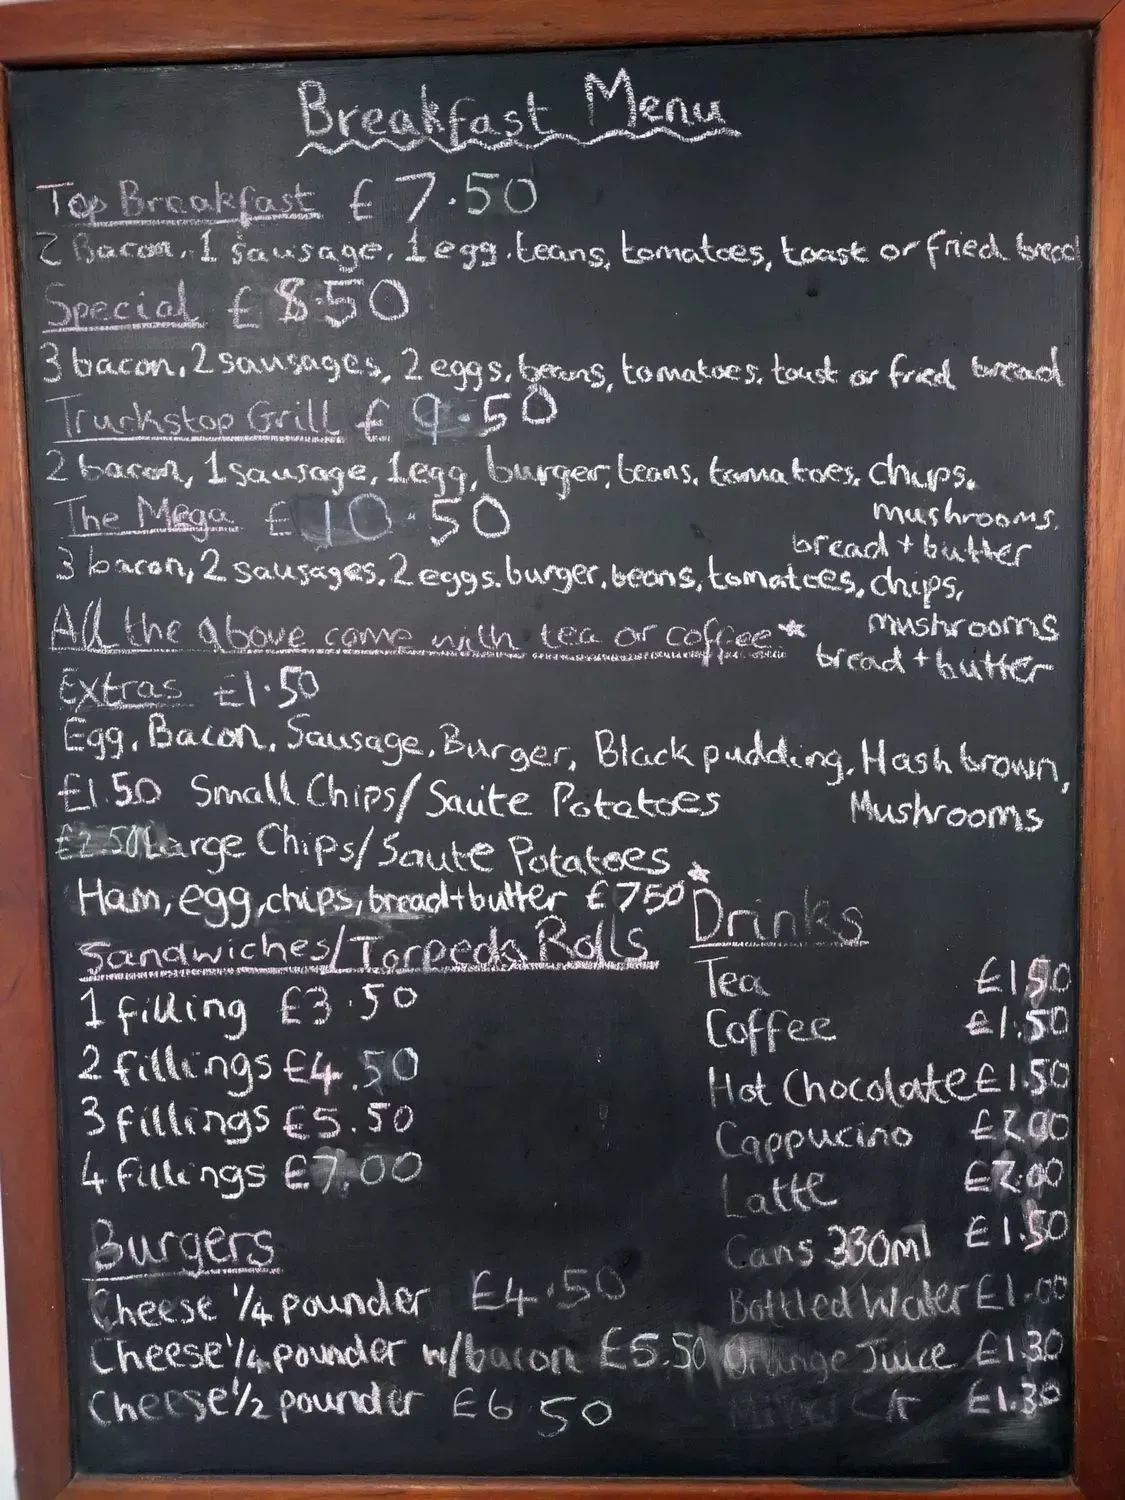 Breakfast Menu
Top Breakfast £7.50
2 Bacon, 1 sausage, 1 egg, beans, tomatoes, toast or fried bread
Special £8.50
3 bacon, 2 sausages, 2 eggs, beans, tomatoes, toast or fried bread
Truckstop Grill £9.50
2 bacon, 1 sausage, 1 egg, burger, beans, tomatoes, chips,
mushrooms,
bread + butter
The Mega £10.50
3 bacon, 2 sausages, 2 eggs, burger, beans, tomatoes, chips,
mushrooms
bread + butter
All the above come with tea or coffee*
Extras £1.50
Egg, Bacon, Sausage, Burger, Black pudding, Hash brown,
Mushrooms
£1.50 Small Chips/Saute Potatoes
£2.50 Large Chips/Saute Potatoes
Ham, egg, chips, bread+butter £7 50*
Sandwiches/Torpedo Rolls
1 filling £3.50
2 fillings £4.50
3 fillings £5.50
4 fillings £7.00
Burgers
Cheese 1/4 pounder £4.50
Cheese 1/4 pounder w/bacon £5.50
Cheese 1/2 pounder £6 50
Drinks
Tea £1.50
Coffee £1.50
Hot Chocolate £1.50
Cappucino £2.00
Latte £2.00
Cans 330ml £1.50
Bottled Water £1.00
Orange Juice £1.30
£1.30